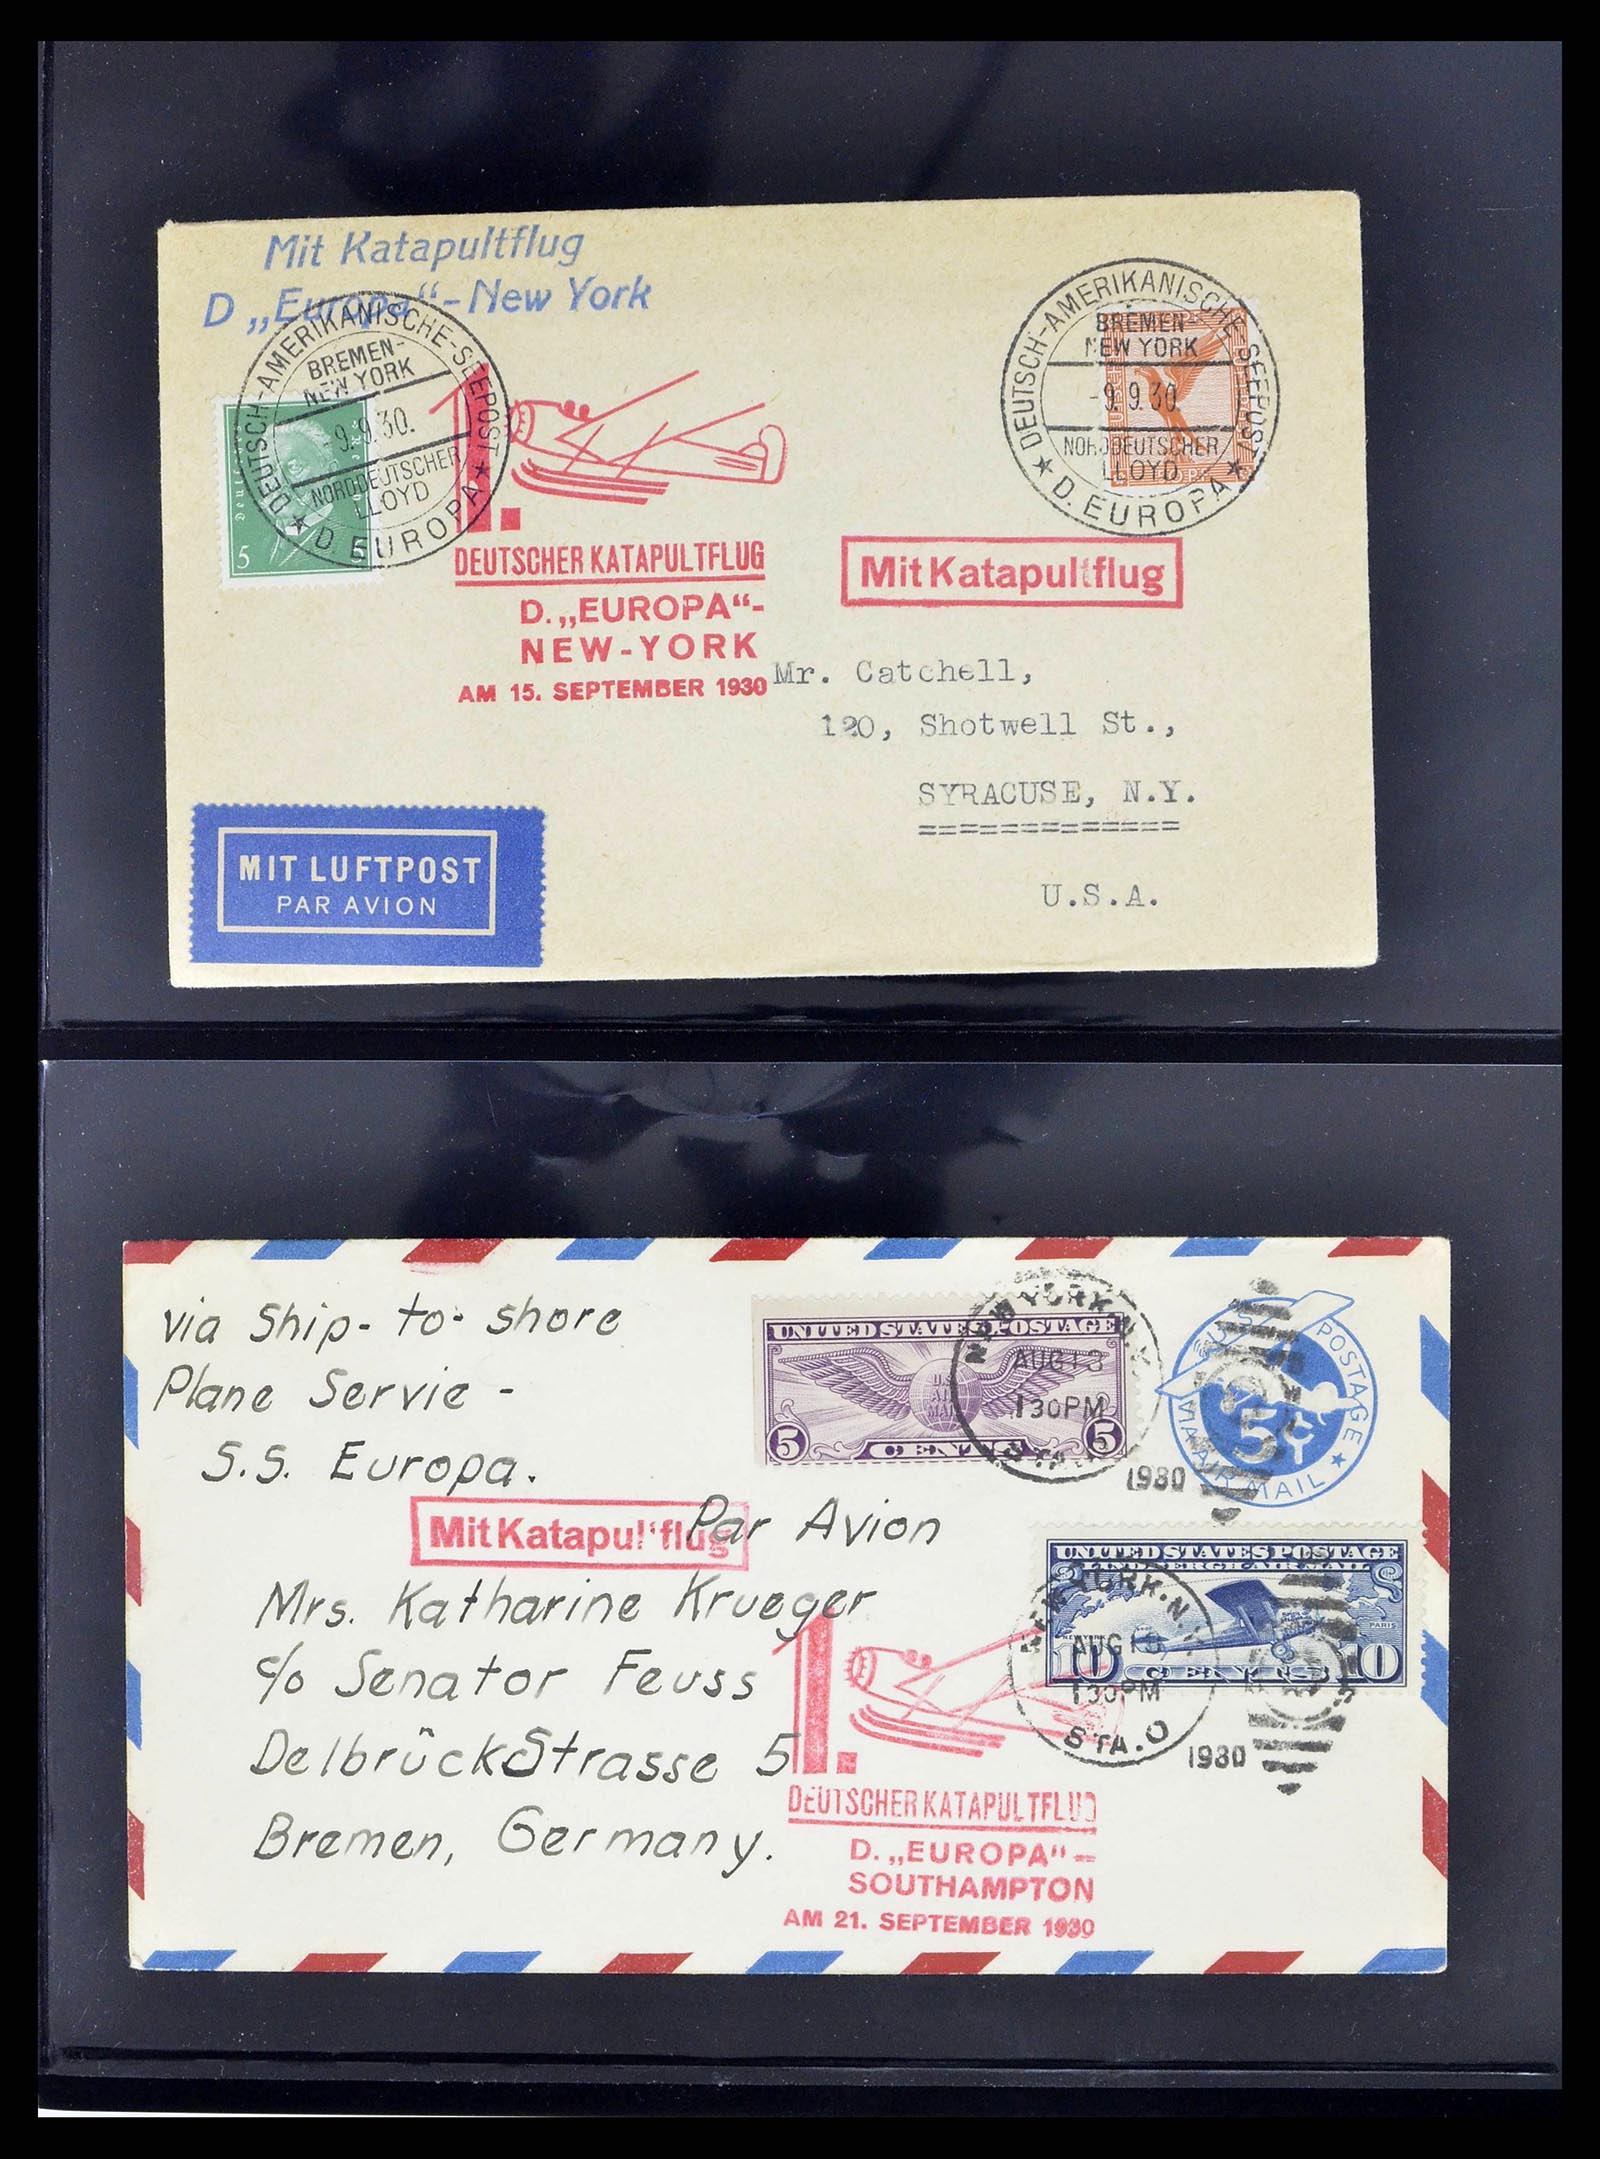 Mit Katapultflug
D „Europa“-New York
DEUTSCH-AMERIKANISCHE-SEEPOST
BREMEN-
NEW YORK
-9.9.30.
NORDDEUTSCHER
LLOYD
★ D. EUROPA ★
5
DEUTSCH-AMERIKANISCHE-SEEPOST
BREMEN-
NEW YORK
-9.9.30.
NORDDEUTSCHER
LLOYD
★ D. EUROPA ★
1.
DEUTSCHER KATAPULTFLUG
D. „EUROPA“-
NEW-YORK
AM 15. SEPTEMBER 1930
Mit Katapultflug
Mr. Catchell,
120, Shotwell St.,
SYRACUSE, N.Y.
=============
U.S.A.
MIT LUFTPOST
PAR AVION
via Ship-to-shore
Plane Servie -
S.S. Europa.
Par Avion
Mit Katapultflug
Mrs. Katharine Krueger
c/o Senator Feuss
DelbrückStrasse 5
Bremen, Germany.
UNITED STATES POSTAGE
U.S.
AIR
MAIL
5 CENTS 5
NEW YORK, N.Y.
AUG 13
130PM
STA.
1930
U.S. POSTAGE
5¢
VIA AIR MAIL ★
UNITED STATES POSTAGE
LINDBERGH AIR MAIL
PARIS
10 CENTS 10
NEW YORK, N.Y.
AUG 13
130PM
STA. O
1930
1.
DEUTSCHER KATAPULTFLUG
D. „EUROPA“-
SOUTHAMPTON
AM 21. SEPTEMBER 1930